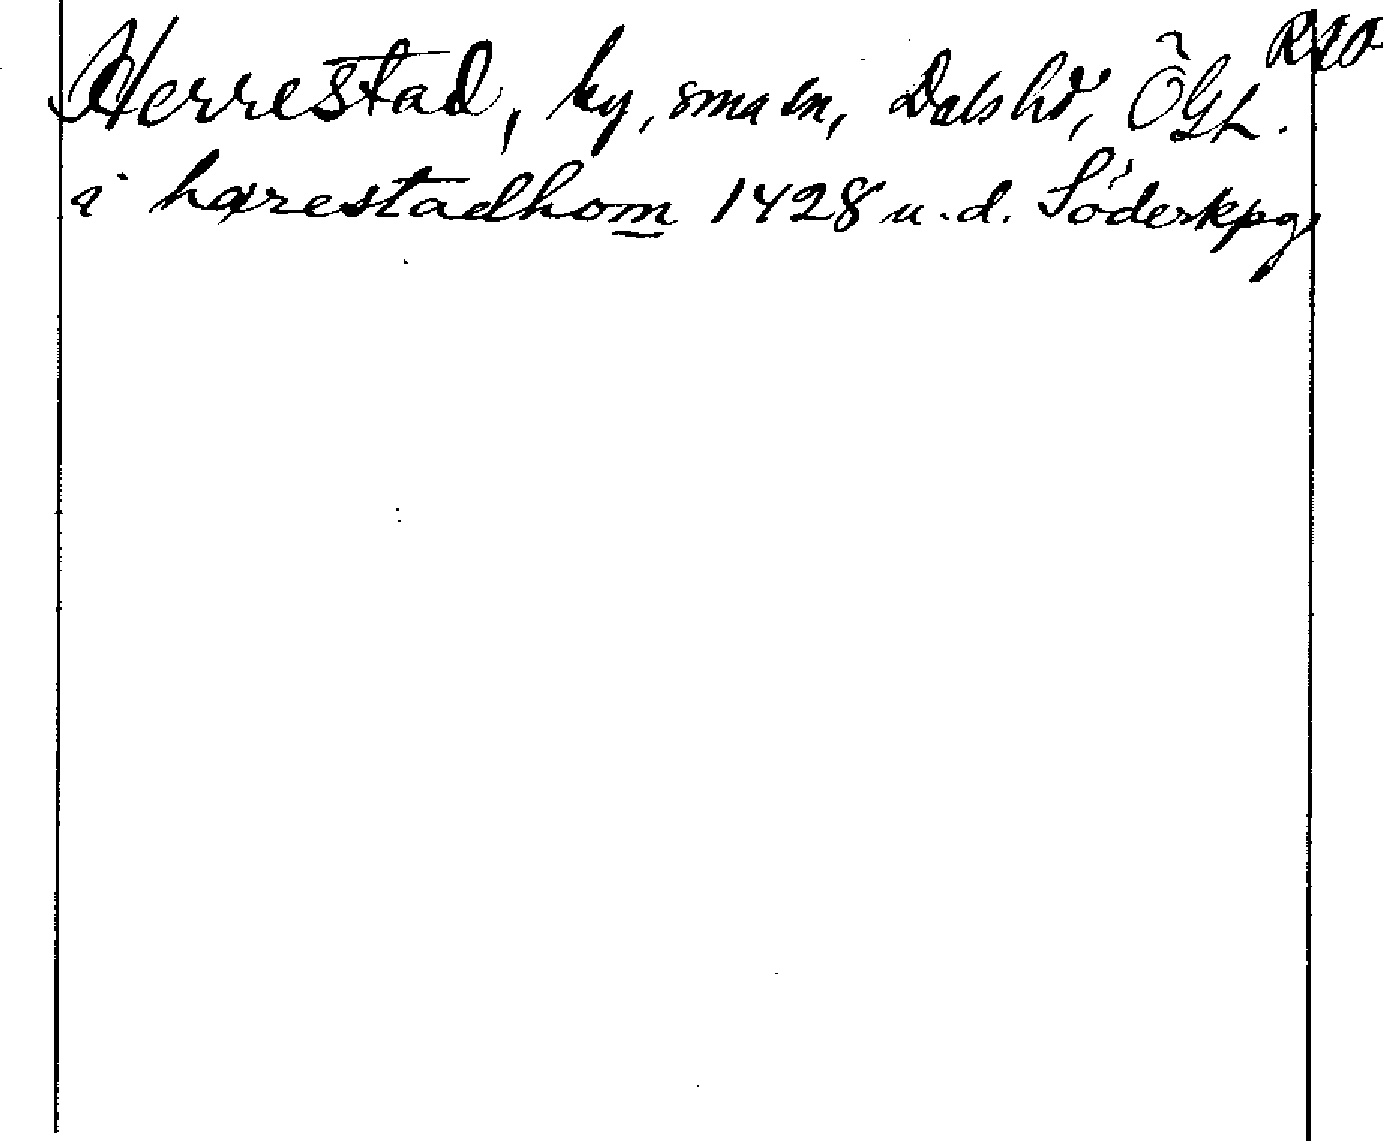 Herrestad, by, sma sn, Dals hd, ÖGL. RAO
i harestadhom 1428 u.d. Söderkpg